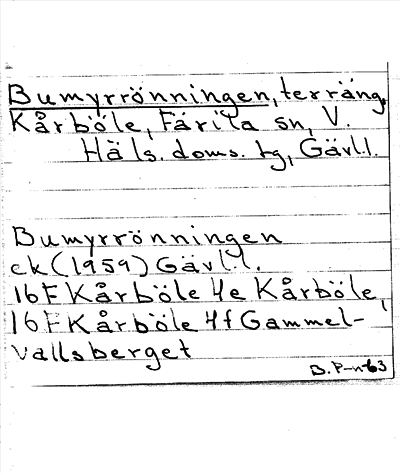 Bumyrrönningen, terräng,
Kårböle, Färila sn, V.
Häls. doms. tg, Gävl.l.
Bumyrrönningen
ek (1959) Gävl.l.
16F Kårböle 4e Kårböle,
16F Kårböle 4f Gammel-
vallsberget
B. P-n 63